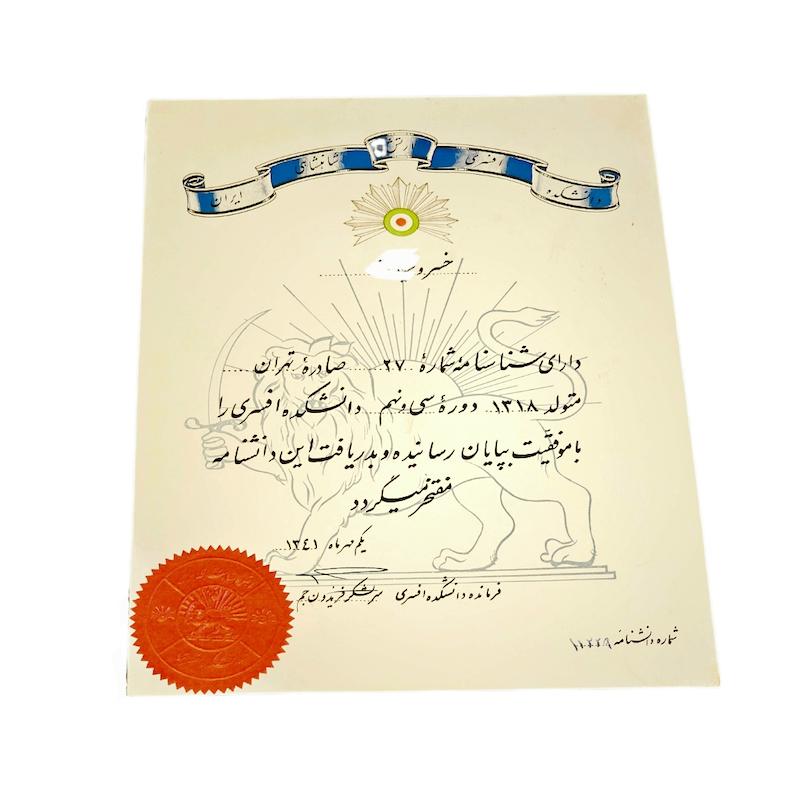 دانشکده افسری ارتش شاهنشاهی ایران
خسرو
دارای شناسنامهٔ شمارهٔ ۲۷ صادرهٔ تهران
متولد ۱۳۱۸ دورهٔ سی و نهم دانشکده افسری را
با موفقیت بپایان رسانیده و بدریافت این دانشنامه
مفتخر میگردد
یکم مهر ماه ۱۳٤۱
فرمانده دانشکده افسری سرلشکر فریدون جم
شماره دانشنامه